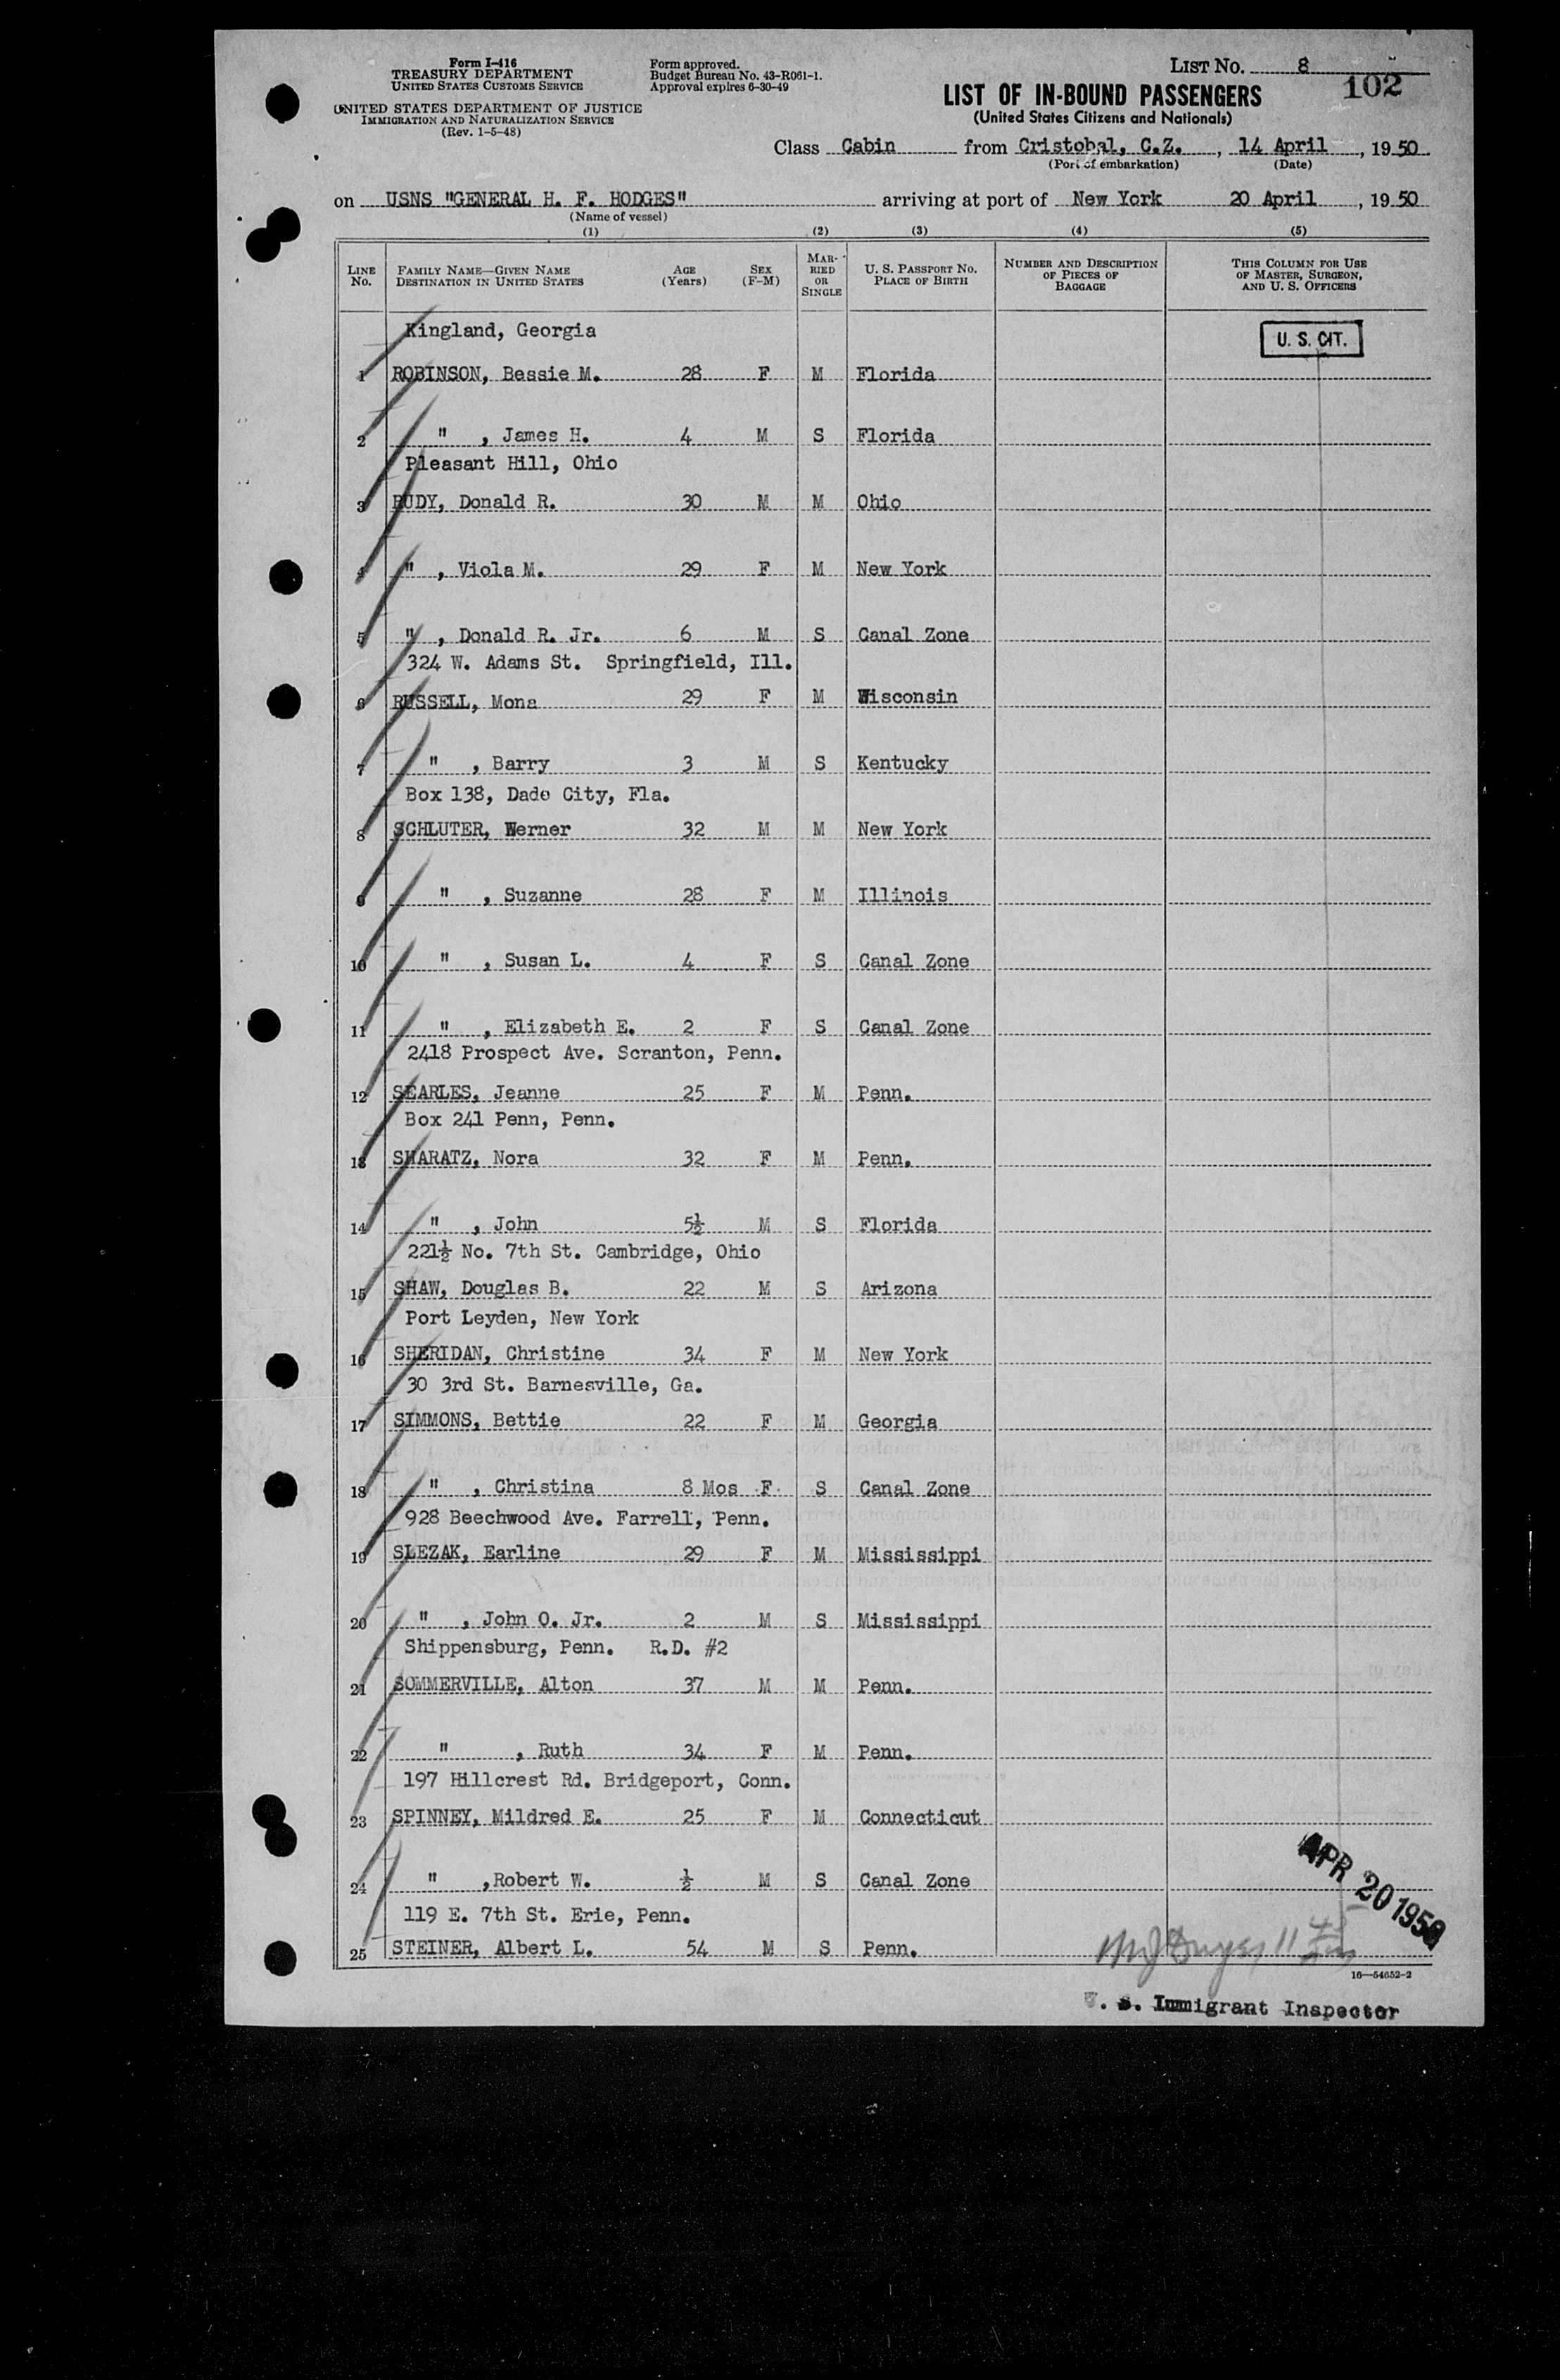 Form I-416
TREASURY DEPARTMENT
UNITED STATES CUSTOMS SERVICE
UNITED STATES DEPARTMENT OF JUSTICE
IMMIGRATION AND NATURALIZATION SERVICE
(Rev. 1-5-48)
Form approved.
Budget Bureau No. 43-R061-1.
Approval expires 6-30-49
LIST NO. 8
102
LIST OF IN-BOUND PASSENGERS
(United States Citizens and Nationals)
Class Cabin from Cristobal, C.Z., 14 April, 1950
(Port of embarkation) (Date)
on USNS "GENERAL H. F. HODGES" arriving at port of New York 20 April, 1950
(Name of vessel)
(1) (2) (3) (4) (5)
LINE NO. FAMILY NAME—GIVEN NAME DESTINATION IN UNITED STATES AGE (Years) SEX (F-M) MARRIED OR SINGLE U. S. PASSPORT NO. PLACE OF BIRTH NUMBER AND DESCRIPTION OF PIECES OF BAGGAGE THIS COLUMN FOR USE OF MASTER, SURGEON, AND U. S. OFFICERS
Kingland, Georgia
U. S. CIT.
1 ROBINSON, Bessie M. 28 F M Florida
2 " , James H. 4 M S Florida
Pleasant Hill, Ohio
3 RUDY, Donald R. 30 M M Ohio
4 " , Viola M. 29 F M New York
5 " , Donald R. Jr. 6 M S Canal Zone
324 W. Adams St. Springfield, Ill.
6 RUSSELL, Mona 29 F M Wisconsin
7 " , Barry 3 M S Kentucky
Box 138, Dade City, Fla.
8 SCHLUTER, Werner 32 M M New York
9 " , Suzanne 28 F M Illinois
10 " , Susan L. 4 F S Canal Zone
11 " , Elizabeth E. 2 F S Canal Zone
2418 Prospect Ave. Scranton, Penn.
12 SEARLES, Jeanne 25 F M Penn.
Box 241 Penn, Penn.
13 SHARATZ, Nora 32 F M Penn.
14 " , John 5½ M S Florida
221½ No. 7th St. Cambridge, Ohio
15 SHAW, Douglas B. 22 M S Arizona
Port Leyden, New York
16 SHERIDAN, Christine 34 F M New York
30 3rd St. Barnesville, Ga.
17 SIMMONS, Bettie 22 F M Georgia
18 " , Christina 8 Mos F S Canal Zone
928 Beechwood Ave. Farrell, Penn.
19 SLEZAK, Earline 29 F M Mississippi
20 " , John O. Jr. 2 M S Mississippi
Shippensburg, Penn. R.D. #2
21 SOMMERVILLE, Alton 37 M M Penn.
22 " , Ruth 34 F M Penn.
197 Hillcrest Rd. Bridgeport, Conn.
23 SPINNEY, Mildred E. 25 F M Connecticut
24 " ,Robert W. ½ M S Canal Zone
119 E. 7th St. Erie, Penn.
APR 20 1950
25 STEINER, Albert L. 54 M S Penn.
16—54652-2
U. S. Immigrant Inspector